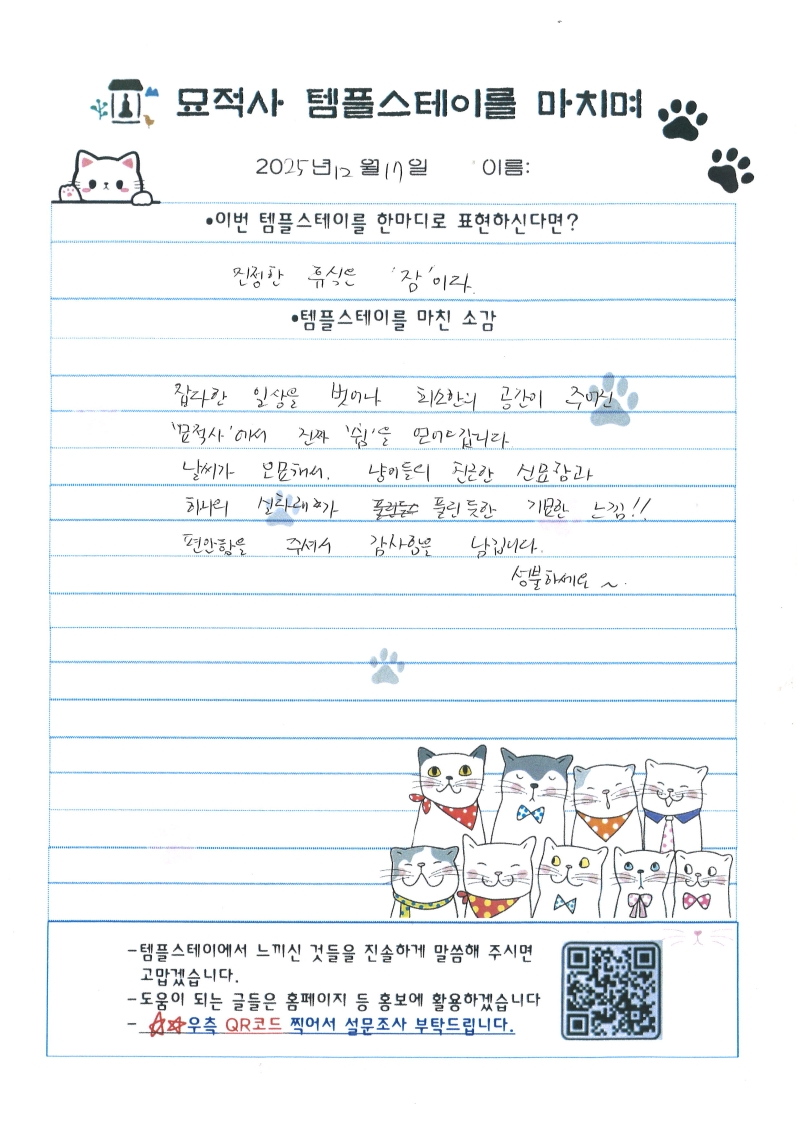 묘적사 템플스테이를 마치며
2025년 12월 17일 이름:
•이번 템플스테이를 한마디로 표현하신다면?
진정한 휴식은 '잠'이라.
•템플스테이를 마친 소감
잡다한 일상을 벗어나 최소한의 공간이 주어진
'묘적사'에서 진짜 '쉼'을 얻어갑니다
날씨가 오묘해서. 냥이들의 친근한 신묘함과
하나의 실타래가 풀린 듯한 기묘한 느낌!!
편안함을 주셔서 감사함을 남깁니다.
성불하세요~.
-템플스테이에서 느끼신 것들을 진솔하게 말씀해 주시면
고맙겠습니다.
-도움이 되는 글들은 홈페이지 등 홍보에 활용하겠습니다
- ☆☆우측 QR코드 찍어서 설문조사 부탁드립니다.